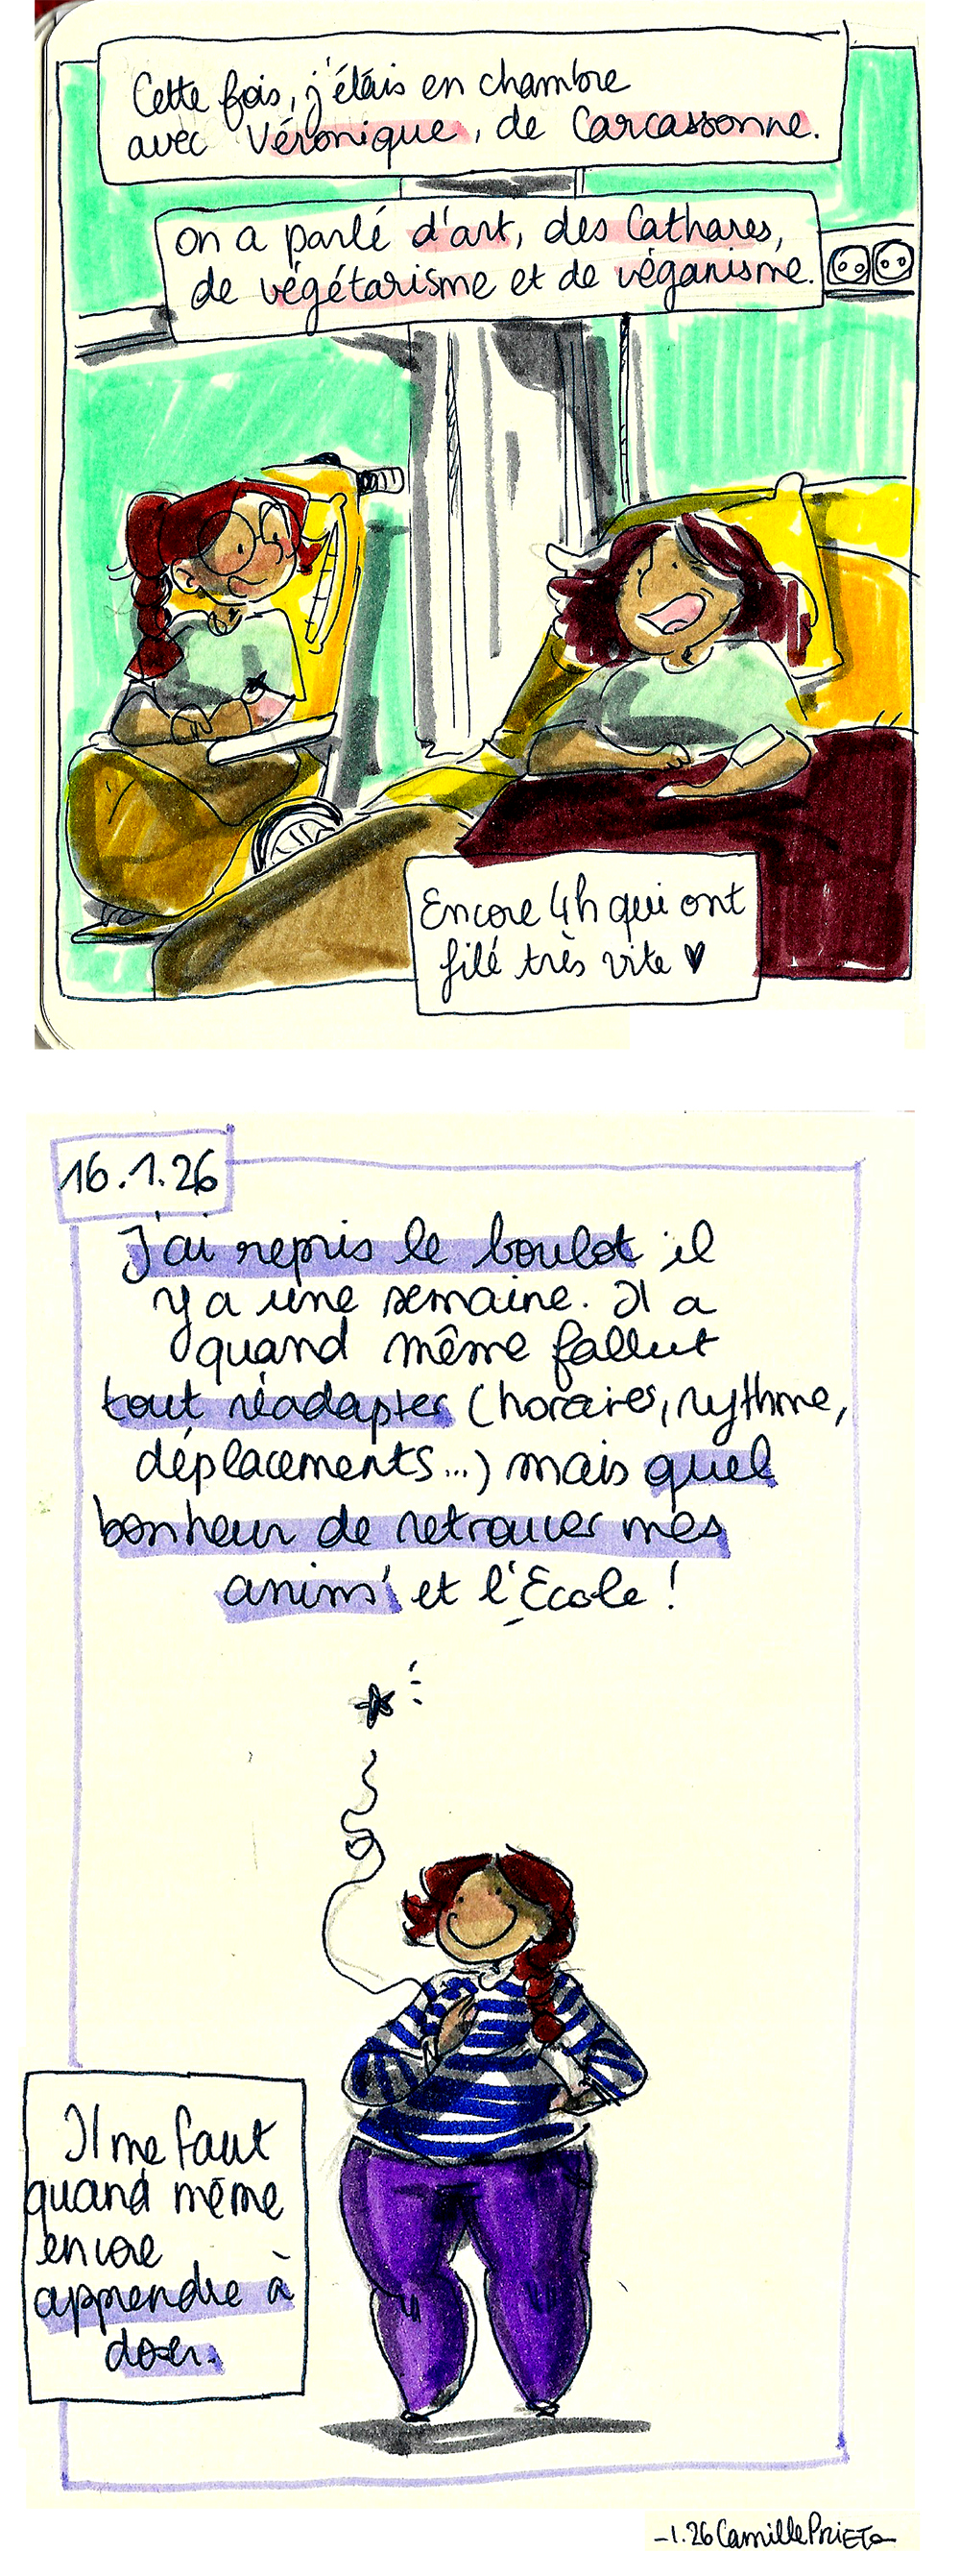 Cette fois, j'étais en chambre
avec Véronique, de Carcassonne.
on a parlé d'art, des Cathares,
de végétarisme et de véganisme.
Encore 4h qui ont
filé très vite ♥
16.1.26
J'ai repris le boulot il
y a une semaine. Il a
quand même fallut
tout réadapter (horaires, rythme,
déplacements...) mais quel
bonheur de retrouver mes
anims' et l'Ecole !
Il me faut
quand même
encore
apprendre à
doser.
-1.26 Camille Prieto-